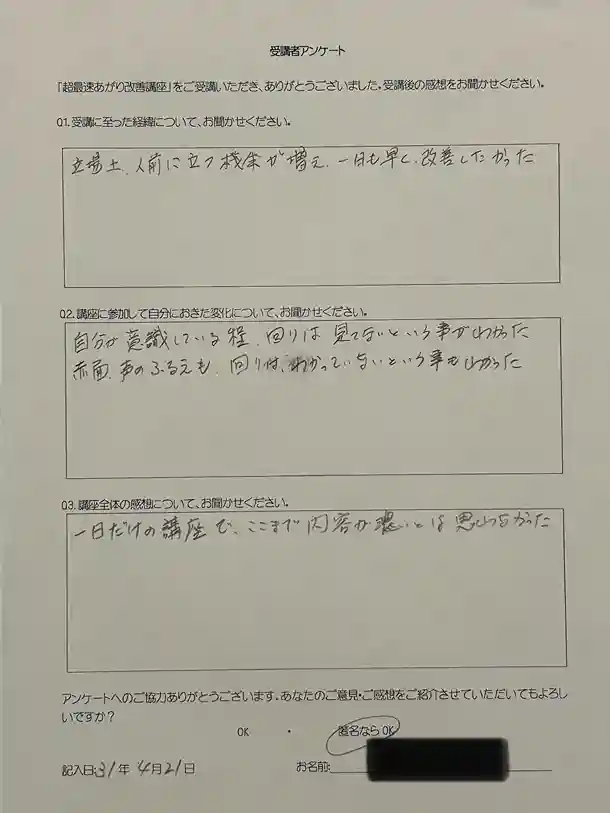 受講者アンケート
「超最速あがり改善講座」をご受講いただき、ありがとうございました。受講後の感想をお聞かせください。
Q1.受講に至った経緯について、お聞かせください。
立場上、人前に立つ機会が増え、一日も早く、改善したかった
Q2.講座に参加して自分におきた変化について、お聞かせください。
自分が意識している程、回りは見てないという事がわかった
赤面、声のふるえも、回りは、わかっていないという事もわかった
Q3.講座全体の感想について、お聞かせください。
一日だけの講座で、ここまで内容が濃いとは思わなかった
アンケートへのご協力ありがとうございます。あなたのご意見・ご感想をご紹介させていただいてもよろし
いですか?
OK ・ 匿名なら OK
記入日:31年 4月21日 お名前: